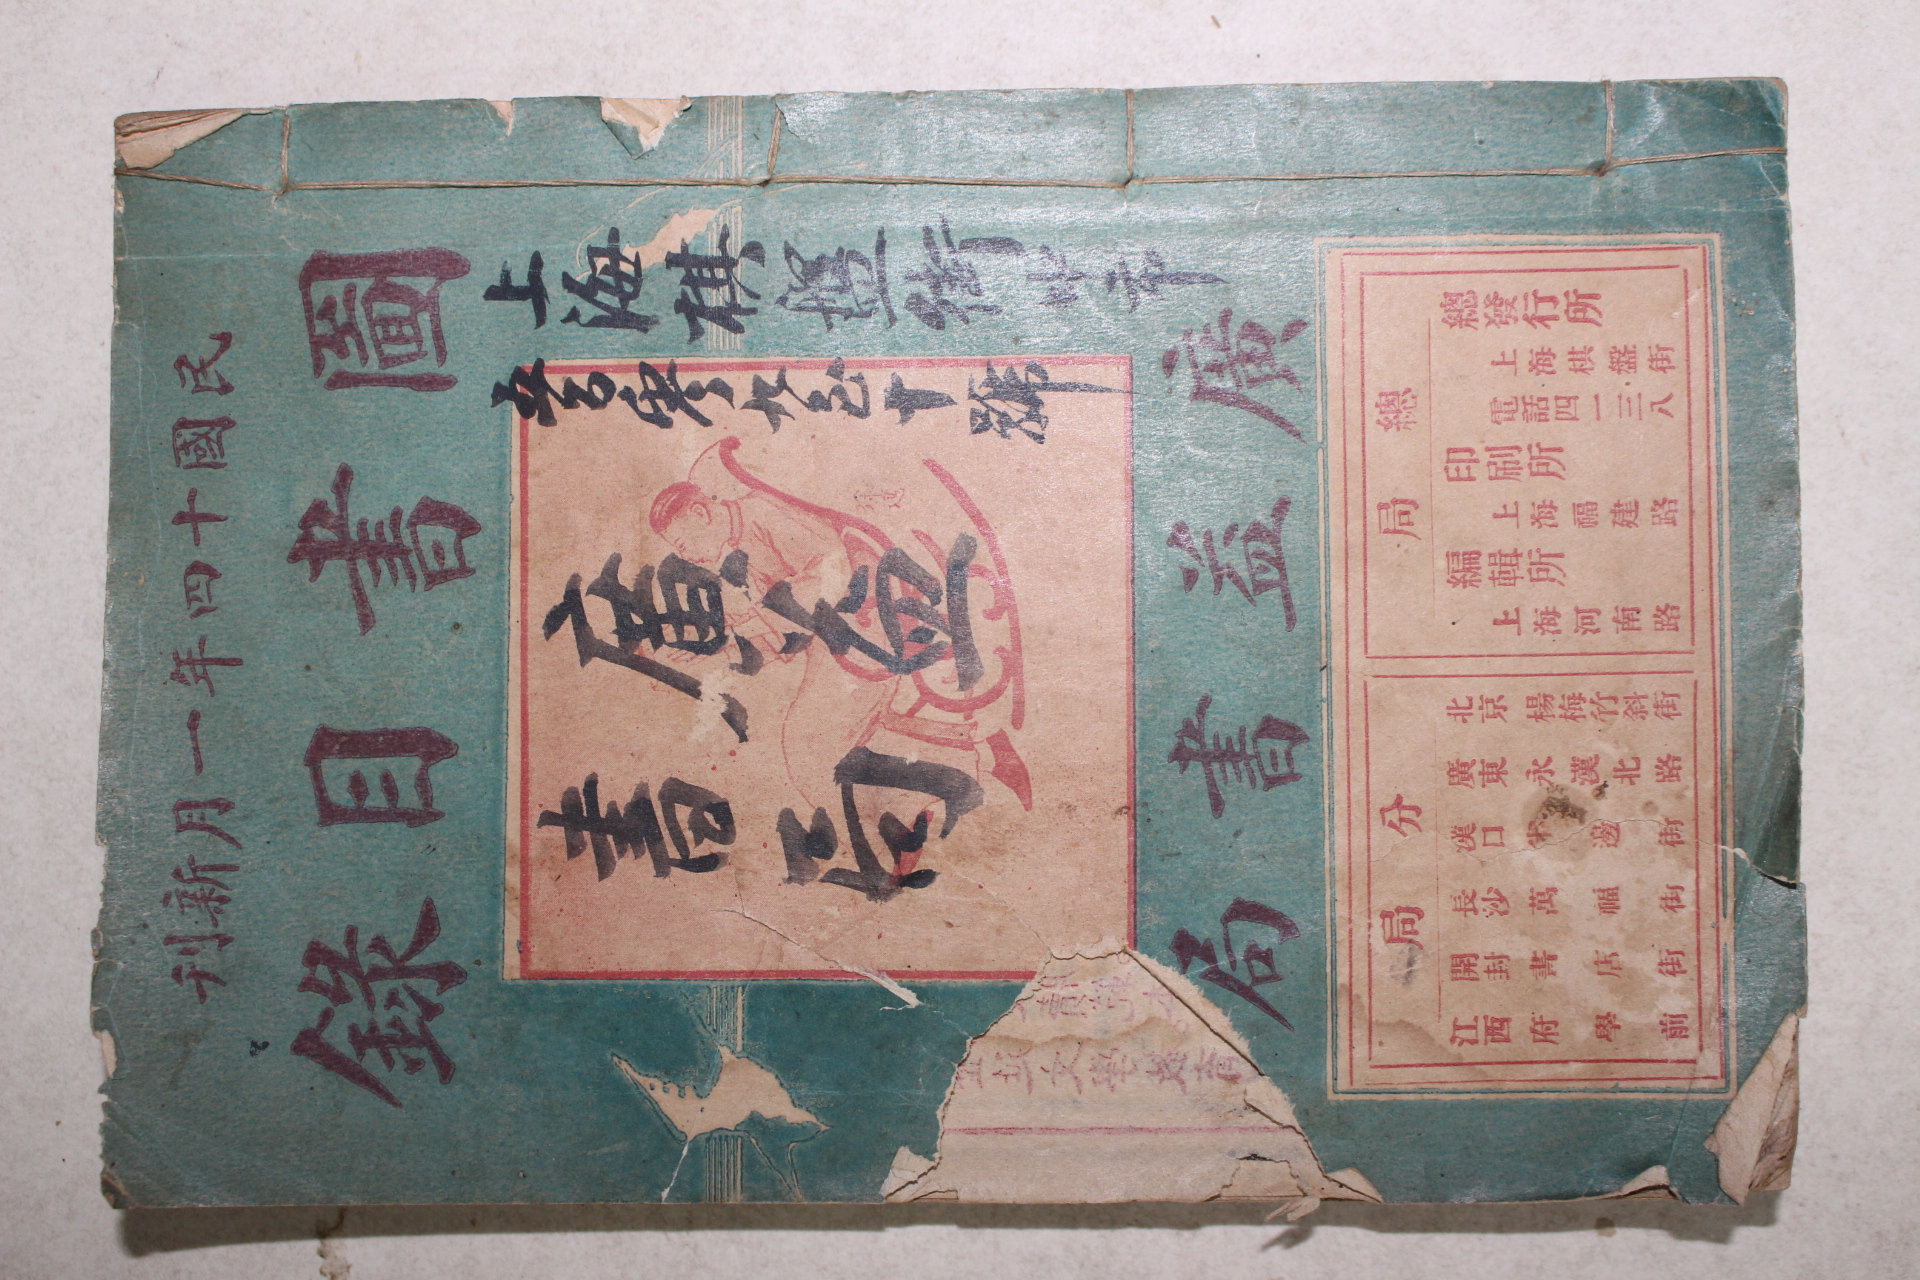 民國十四年一月新刊
圖書目錄
上海棋盤街中市
廣益
書局
廣益書局
總局
總發行所
上海棋盤街
電話四一三八
印刷所
上海福建路
編輯所
上海河南路
分局
北京楊梅竹斜街
廣東永漢北路
漢口 邊街
長沙萬福街
開封書店街
江西府學前街